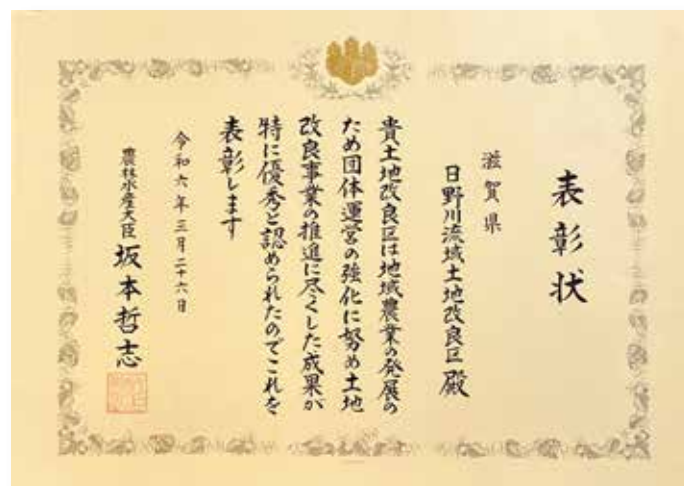 表彰状
滋賀県
日野川流域土地改良区殿
貴土地改良区は地域農業の発展の
ため団体運営の強化に努め土地
改良事業の推進に尽くした成果が
特に優秀と認められたのでこれを
表彰します
令和六年三月二十六日
農林水産大臣 坂本哲志